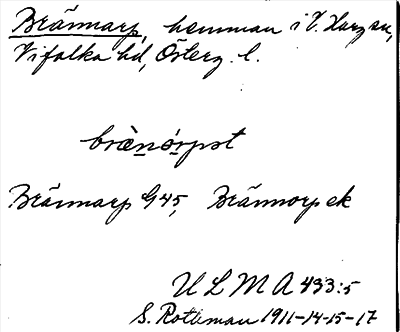 Brännarp, hemman i V. Harg sn,
Vifolka hd, Österg. l.
bræ̀nórpət
Brännarp G45, Brännorp ek
ULMA 433:5
S. Rothman 1911-14-15-17